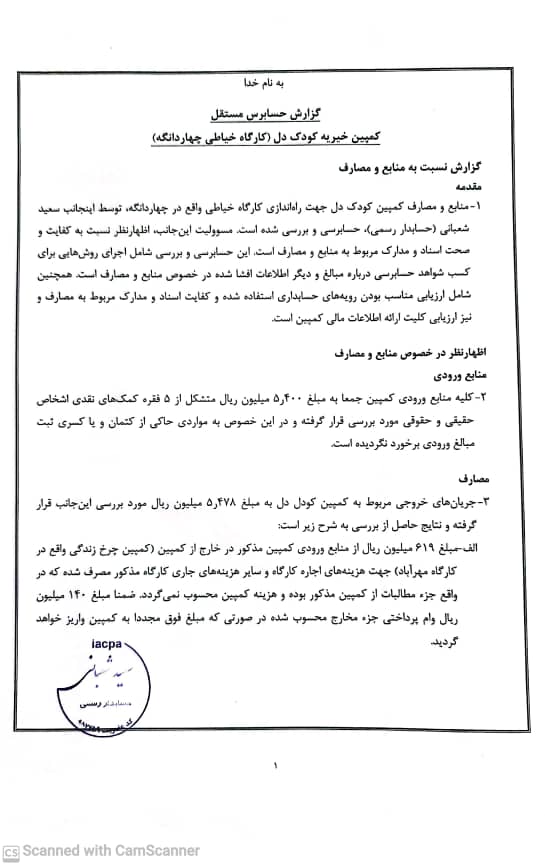 به نام خدا
گزارش حسابرس مستقل
کمپین خیریه کودک دل (کارگاه خیاطی چهاردانگه)
گزارش نسبت به منابع و مصارف
مقدمه
۱-منابع و مصارف کمپین کودک دل جهت راه‌اندازی کارگاه خیاطی واقع در چهاردانگه، توسط اینجانب سعید
شعبانی (حسابدار رسمی)، حسابرسی و بررسی شده است. مسوولیت این‌جانب، اظهارنظر نسبت به کفایت و
صحت اسناد و مدارک مربوط به منابع و مصارف است. این حسابرسی و بررسی شامل اجرای روش‌هایی برای
کسب شواهد حسابرسی درباره مبالغ و دیگر اطلاعات افشا شده در خصوص منابع و مصارف است. همچنین
شامل ارزیابی مناسب بودن رویه‌های حسابداری استفاده شده و کفایت اسناد و مدارک مربوط به مصارف و
نیز ارزیابی کلیت ارائه اطلاعات مالی کمپین است.
اظهارنظر در خصوص منابع و مصارف
منابع ورودی
۲-کلیه منابع ورودی کمپین جمعا به مبلغ ۵٫۴۰۰ میلیون ریال متشکل از ۵ فقره کمک‌های نقدی اشخاص
حقیقی و حقوقی مورد بررسی قرار گرفته و در این خصوص به مواردی حاکی از کتمان و یا کسری ثبت
مبالغ ورودی برخورد نگردیده است.
مصارف
۳-جریان‌های خروجی مربوط به کمپین کودل دل به مبلغ ۵٫۴۷۸ میلیون ریال مورد بررسی این‌جانب قرار
گرفته و نتایج حاصل از بررسی به شرح زیر است:
الف-مبلغ ۶۱۹ میلیون ریال از منابع ورودی کمپین مذکور در خارج از کمپین (کمپین چرخ زندگی واقع در
کارگاه مهرآباد) جهت هزینه‌های اجاره کارگاه و سایر هزینه‌های جاری کارگاه مذکور مصرف شده که در
واقع جزء مطالبات از کمپین مذکور بوده و هزینه کمپین محسوب نمی‌گردد. ضمنا مبلغ ۱۴۰ میلیون
ریال وام پرداختی جزء مخارج محسوب شده در صورتی که مبلغ فوق مجددا به کمپین واریز خواهد
گردید.
iacpa
سعید شعبانی
حسابدار رسمی
کد عضویت
۱
CS Scanned with CamScanner